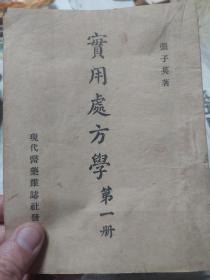 張子英著
實用處方學 第一册
現代醫藥雜誌社發